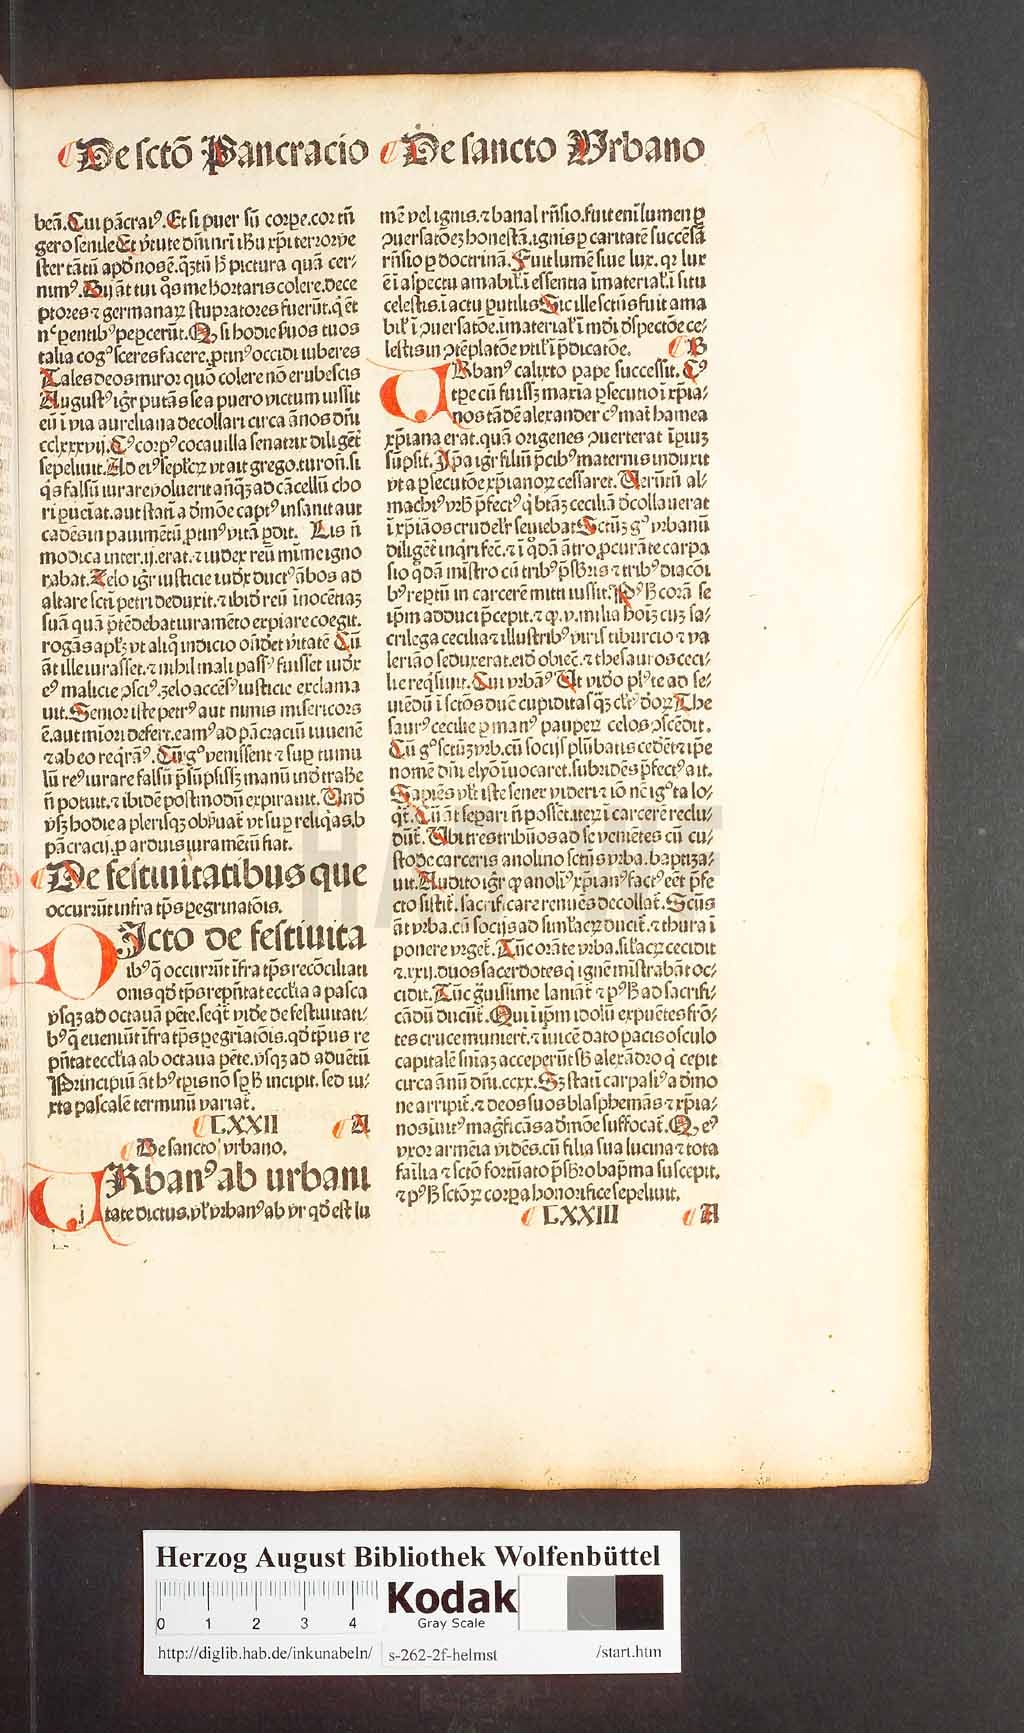 De sctō Pancracio De sancto Urbano
beā. Cui pācraiꝰ. Et si puer sū corpe. cor tñ
gero senile Et v̄tute dn̄i nr̄i ihū xp̄i terror vr̄e
ster tātū apd nos ē. q̄ztū h̄ pictura quā cer⸗
nimꝰ. Dij āt tui q̊s me hortaris colere. dece
ptores ⁊ germanaꝝ stupratores fuerūt. q̇ ēt
nᶜ pentibꝰ pepcerūt. Q, si hodie suos tuos
talia cogꝰsceres facere, ꝓtinꝰ occidi iuberes
Tales deos miror quō colere nō erubescis
Augustꝰ igr̄ putās se a puero victum iussit
eū ī via aureliana decollari circa ānos dn̄i
cclxxxvij. Cꝰ corpꝰ cocauilla senatrix diligēt
sepeliuit. Ad eiꝰ sepl̄cꝝ vt ait grego. turoñ. si
q̇s falsū iurare voluerit anq̄ꝫ ad cācellū cho
ri ꝑuēiat. aut statī a dēmōe captꝰ insanit aut
cadēs in pauimētū ꝓtinꝰ vitā ꝑdit. Lis ñ
modica inter .ij. erat. ⁊ iudex reū mīme igno
rabat. Zelo igr̄ iusticie iudꝫ ductꝰ ābos ad
altare scti petri deduxit. ⁊ ibid reū īnocētiaꝫ
suā quā p̄tēdebat iuramēto expiare coegit.
rogās apl̄ꝫ vt aliq̊ indicio on̄det v̄itatē Cū
āt ille iurasset. ⁊ nihil mali passꝰ fuisset iudꝫ
eꝰ malicie ꝯsciꝰ. zelo accēsꝰ iusticie exclama
uit. Senior iste petrꝰ aut nimis misericors
ē. aut mīori defert. eamꝰ ad pācraciū iuuenē
⁊ ab eo reqrāꝰ. Cūgꝰ venissent ⁊ suꝑ tumu
lū reꝰ iurare falsū p̄sūpsissꝫ manū ind trahē
ñ potuit. ⁊ ibidē postmodū expirauit. Und
vsꝫ hodie a plerisqꝫ obsuat vt suꝑ reliq̇as .b
pācracij. ꝑ arduis iuramētū fiat.
De festiuitatibus que
occurrūt infra tp̄s ꝑegrinatōis.
Dicto de festiuita
ibꝰ q̄ occurrūt īfra tp̄s recōciliati
onis qd tp̄s rep̄ntat ecclia a pasca
vsqꝫ ad octauā pēte. seqt vide de festiuitati⸗
bꝰ q̄ eueniūt īfra tp̄s ꝑegriatōis. qd tp̄us re
pñtat ecclia ab octaua pēte. vsqꝫ ad aduētū
Principiū āt hꝰ tp̄is nō sꝑ h̄ incipit. sed iu⸗
xta pascalē terminū variat.
LXXII A
De sancto vrbano.
Urbanꝰ ab urbani
tate dictus. vl̄ vrbanꝰ ab vr qd est lu
mē vel ignis. ⁊ banal rn̄sio. fuit eni lumen ꝑ
ꝯuersatōeꝫ honestā. ignis ꝑ caritatē succēsā
rn̄sio ꝑ doctrinā. Fuit lumē siue lux. qꝛ lux
ē ī aspectu amabil̄. ī essentia īmaterial̄. ī situ
celestis. ī actu ꝑutilis. Sic ille sctūs fuit ama
bil̄ ī ꝯuersatōe. īmaterial̄ ī mōi dspectōe ce⸗
lestis in ꝯtēplatōe vtil̄ ī p̄dicatōe. B
Urbanꝰ calixto pape successit. Cꝰ
tpe cū fuissꝫ maxīa ꝑsecutio ī xp̄ia⸗
nos tādē alexander cꝰ mat̄ hamea
xp̄iana erat. quā origenes ꝯuerterat īpiuꝫ
sūpsit. Ip̄a igr̄ filiū p̄cibꝰ maternis induxit
vt a ꝑsecutōe xp̄ianoꝝ cessaret. Uerūtn̄ al⸗
machꝰ vrb̄ p̄fectꝰ q̇ btāꝫ ceciliā dcollauerat
ī xp̄iāos crudelr̄ seuiebat Sctūꝫ gꝰ vrbanū
diligēt inq̇ri fec̄. ⁊ ī q̇dā ātro, ꝓcurāte carpa
sio q̇dā mīstro cū tribꝰ p̄sb̄ris ⁊ tribꝰ diacōi
bꝰ reptū in carcerē mitti iussit. Pꝰ h̄ corā se
ip̄m adduci p̄cepit. ⁊ ꝙ .v. milia hoīꝫ cuꝫ sa⸗
crilega cecilia ⁊ illustribꝰ viris tiburcio ⁊ va
leriāo seduxerat. eid obiec̄. ⁊ thesauros ceci⸗
lie reqsiuit. Cui vrbāꝰ Ut video plꝰ te ad se⸗
uiēdū ī sctōs ducē cupiditas q̄ꝫ cltꝰ doꝝ. The
saurꝰ cecilie ꝑ manꝰ pauperꝝ celos ꝯscēdit.
Cū gꝰ sctūꝫ vrb. cū socijs plūbatis cedēt ⁊ ip̄e
nomē dn̄i elyōn īuocaret. subridēs p̄fectꝰ ait.
Sapiēs vult iste senex videri ⁊ iō nē igꝰta lo⸗
q̄t. Cū āt seꝑari ñ posset. iteꝝ ī carcerē reclu⸗
dūt. Ubi tres tribūos ad se veniētes cū cu⸗
stode carceris anolino sctūs vrba. baptiza⸗
uit. Audito igr̄ ꝙ anolꝰ xp̄ianꝰ factꝰ eēt p̄fe
cto sistit. sacrificare renuēs decollat. Sctūs
āt vrba. cū socijs ad siml̄acꝝ ducit. ⁊ thura ī
ponere vrget. Tūc orāte vrba. sil̄acꝝ cecidit
⁊ .xxij. duos sacerdotes q̇ ignē mīstrabāt oc⸗
cidit. Tūc g̊uissime laniāt ⁊ pꝰ h̄ ad sacrifi⸗
cādū ducūt. Qui ī ip̄m idolū expuētes frō⸗
tes cruce muniert. ⁊ īuicē dato pacis osculo
capitalē sn̄iaꝫ acceperūt sb̄ alexādro q̇ cepit
circa ānū dn̄i. ccxx. Sꝫ statī carpasiꝰ a dmo
ne arripit. ⁊ deos suos blasphemās ⁊ xp̄ia⸗
nos īuitꝰ magficās a dmōe suffocat. Q, eꝰ
vxor armēia vidēs. cū filia sua lucina ⁊ tota
failia ⁊ sctō fortūato p̄sb̄ro bap̄ma suscepit.
⁊ pꝰ h̄ sctōꝝ corpa honorifice sepeliuit.
LXXIII A
HAB WF
Herzog August Bibliothek Wolfenbüttel
Kodak
Gray Scale
0 1 2 3 4
http://diglib.hab.de/inkunabeln/ s-262-2f-helmst /start.htm